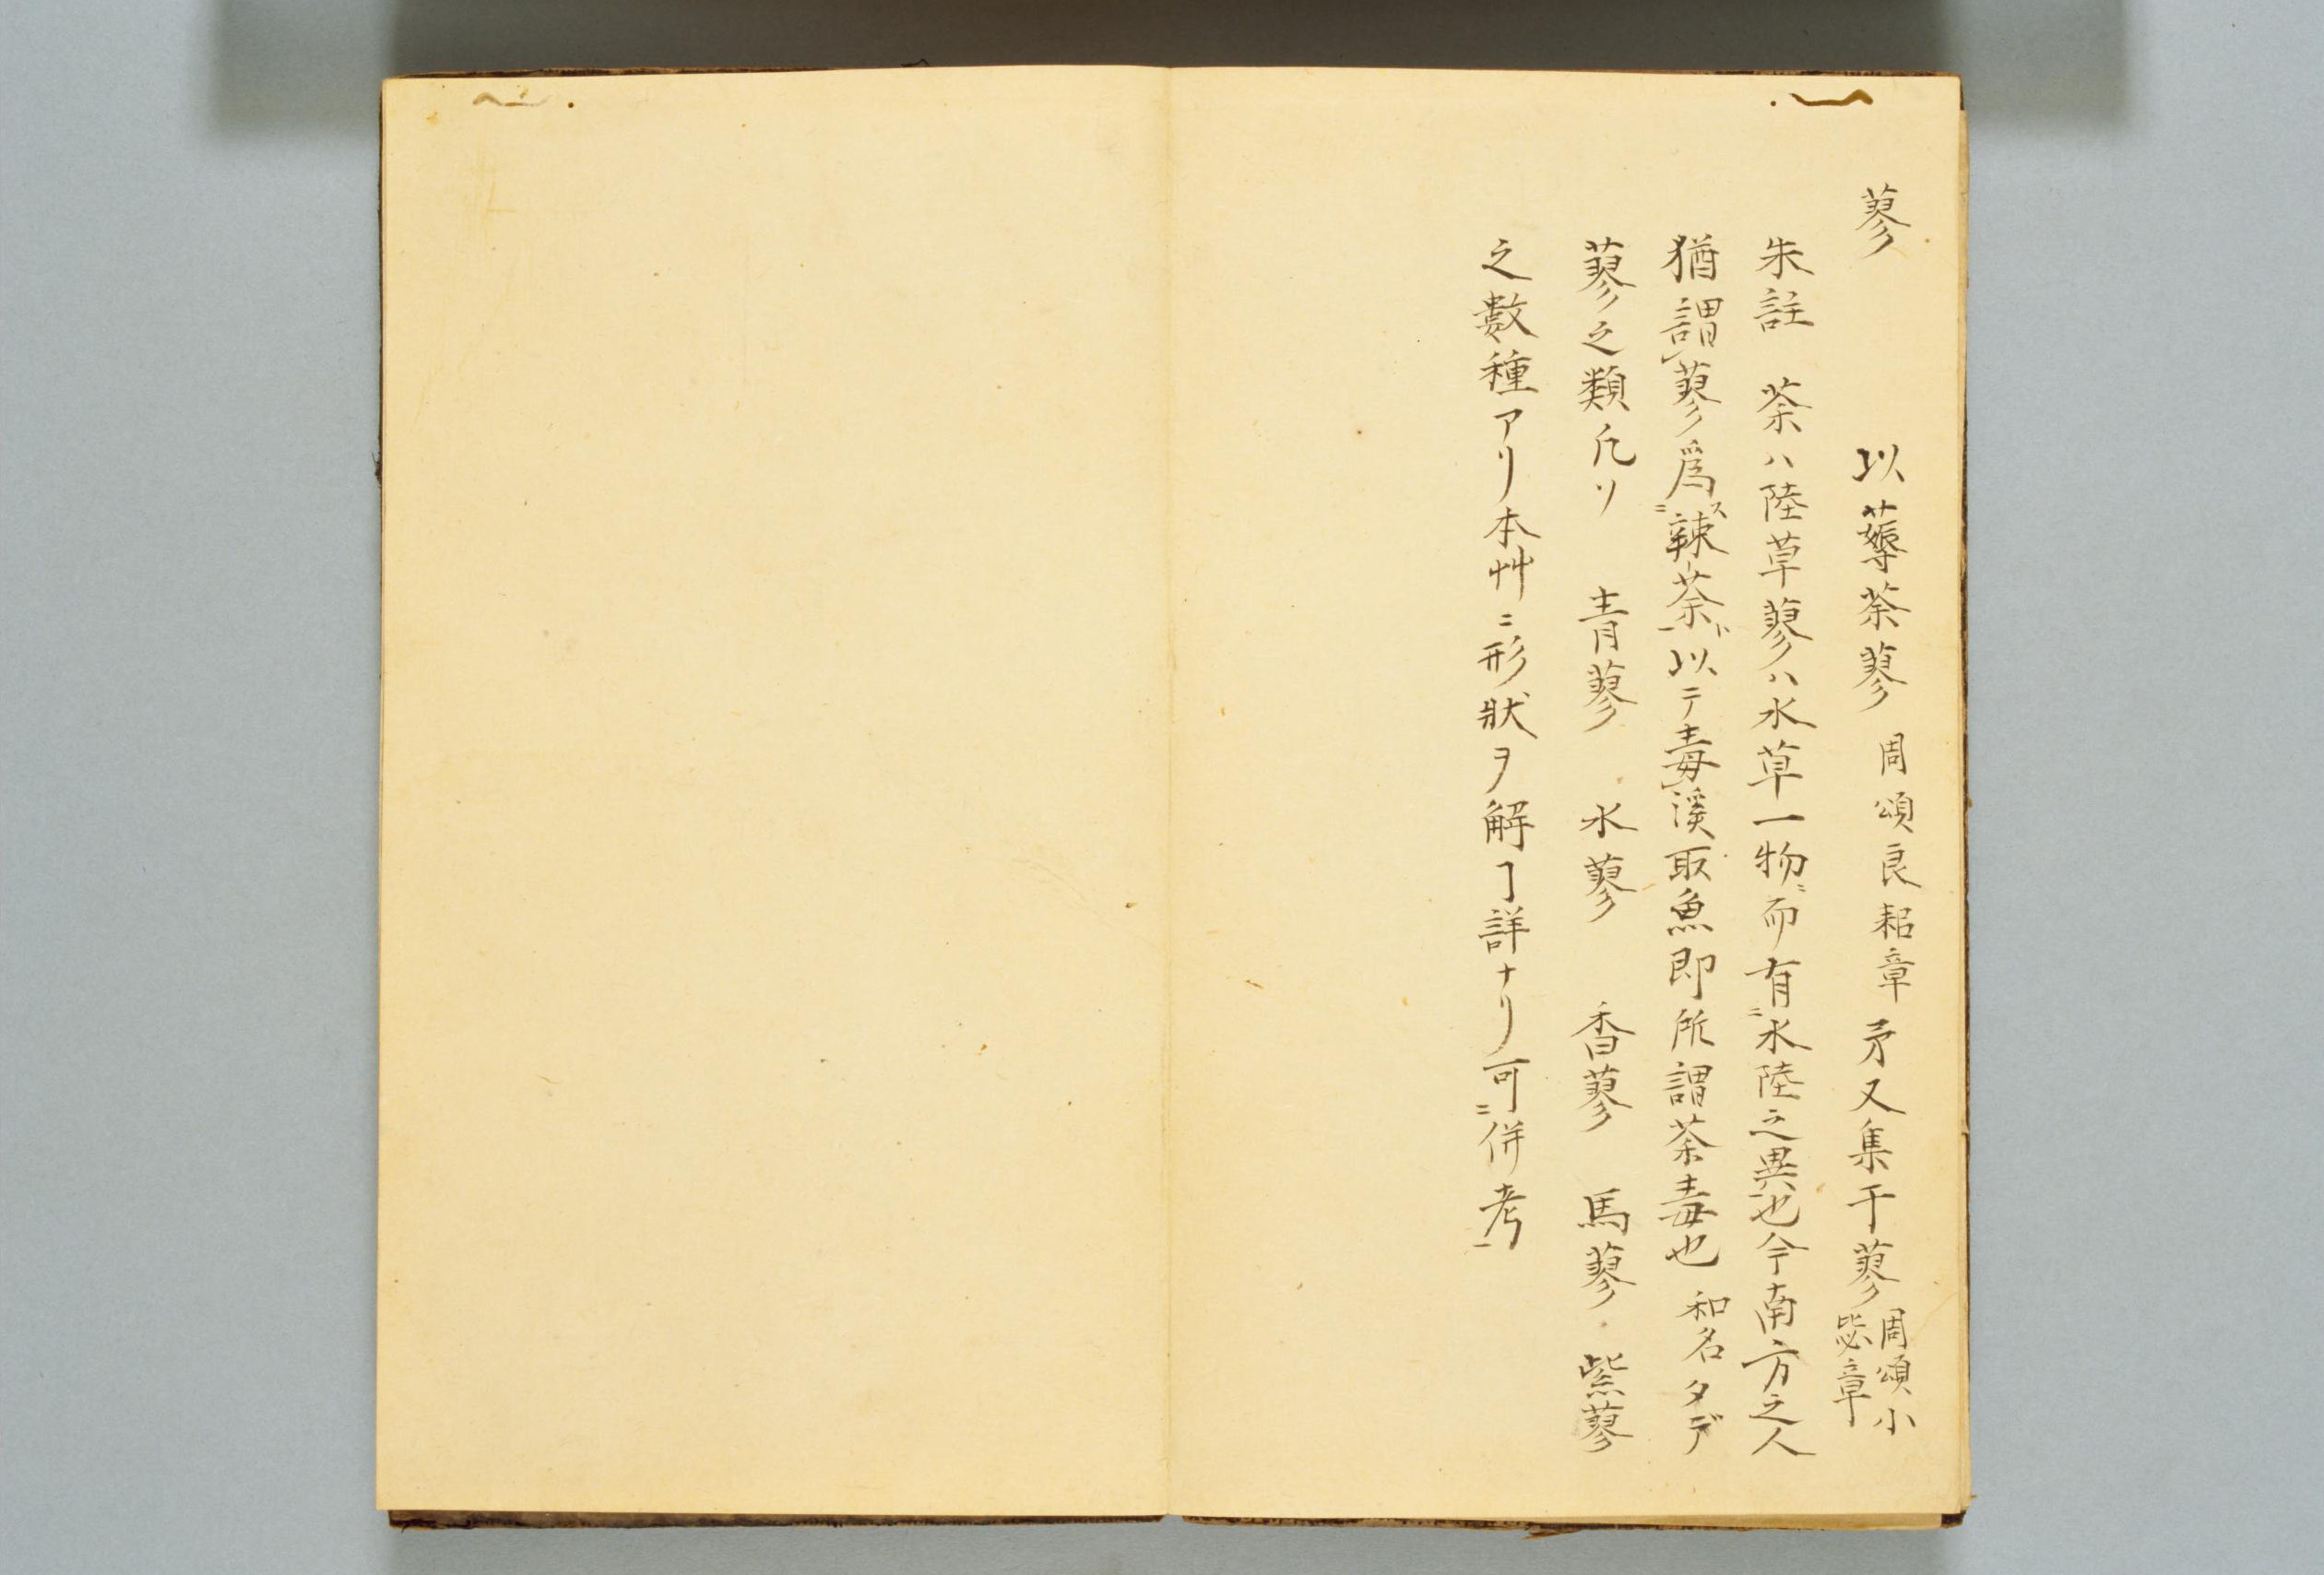 蓼　以薅荼蓼　周頌良耜章　予又集于蓼　周頌小
毖章
朱註　荼ハ陸草蓼ハ水草一物ニ而有ニ水陸之異一也今南方之人
猶謂レ蓼爲ニス辣荼一ト以テ毒レ溪取魚即所謂荼毒也　和名タデ
蓼之類凡ソ　青蓼　水蓼　香蓼　馬蓼　紫蓼
之數種アリ本艸ニ形狀ヲ解ヿ詳ナリ可ニ併考一